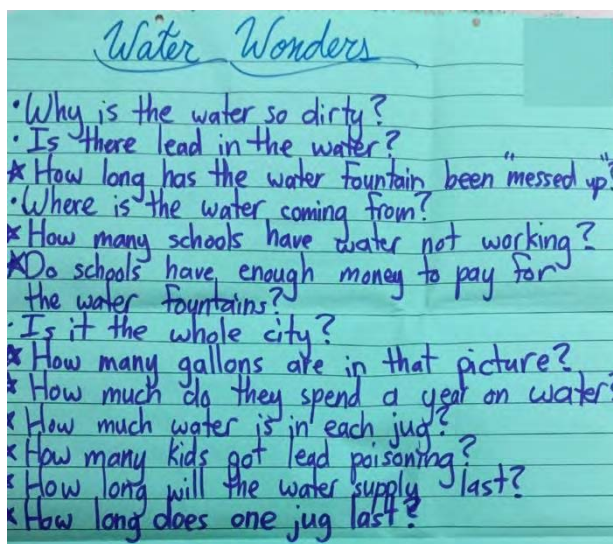 Water Wonders
· Why is the water so dirty?
· Is there lead in the water?
★ How long has the water fountain been "messed up"?
· Where is the water coming from?
★ How many schools have water not working?
★ Do schools have enough money to pay for
the water fountains?
· Is it the whole city?
★ How many gallons are in that picture?
★ How much do they spend a year on water?
★ How much water is in each jug?
★ How many kids got lead poisoning?
★ How long will the water supply last?
★ How long does one jug last?